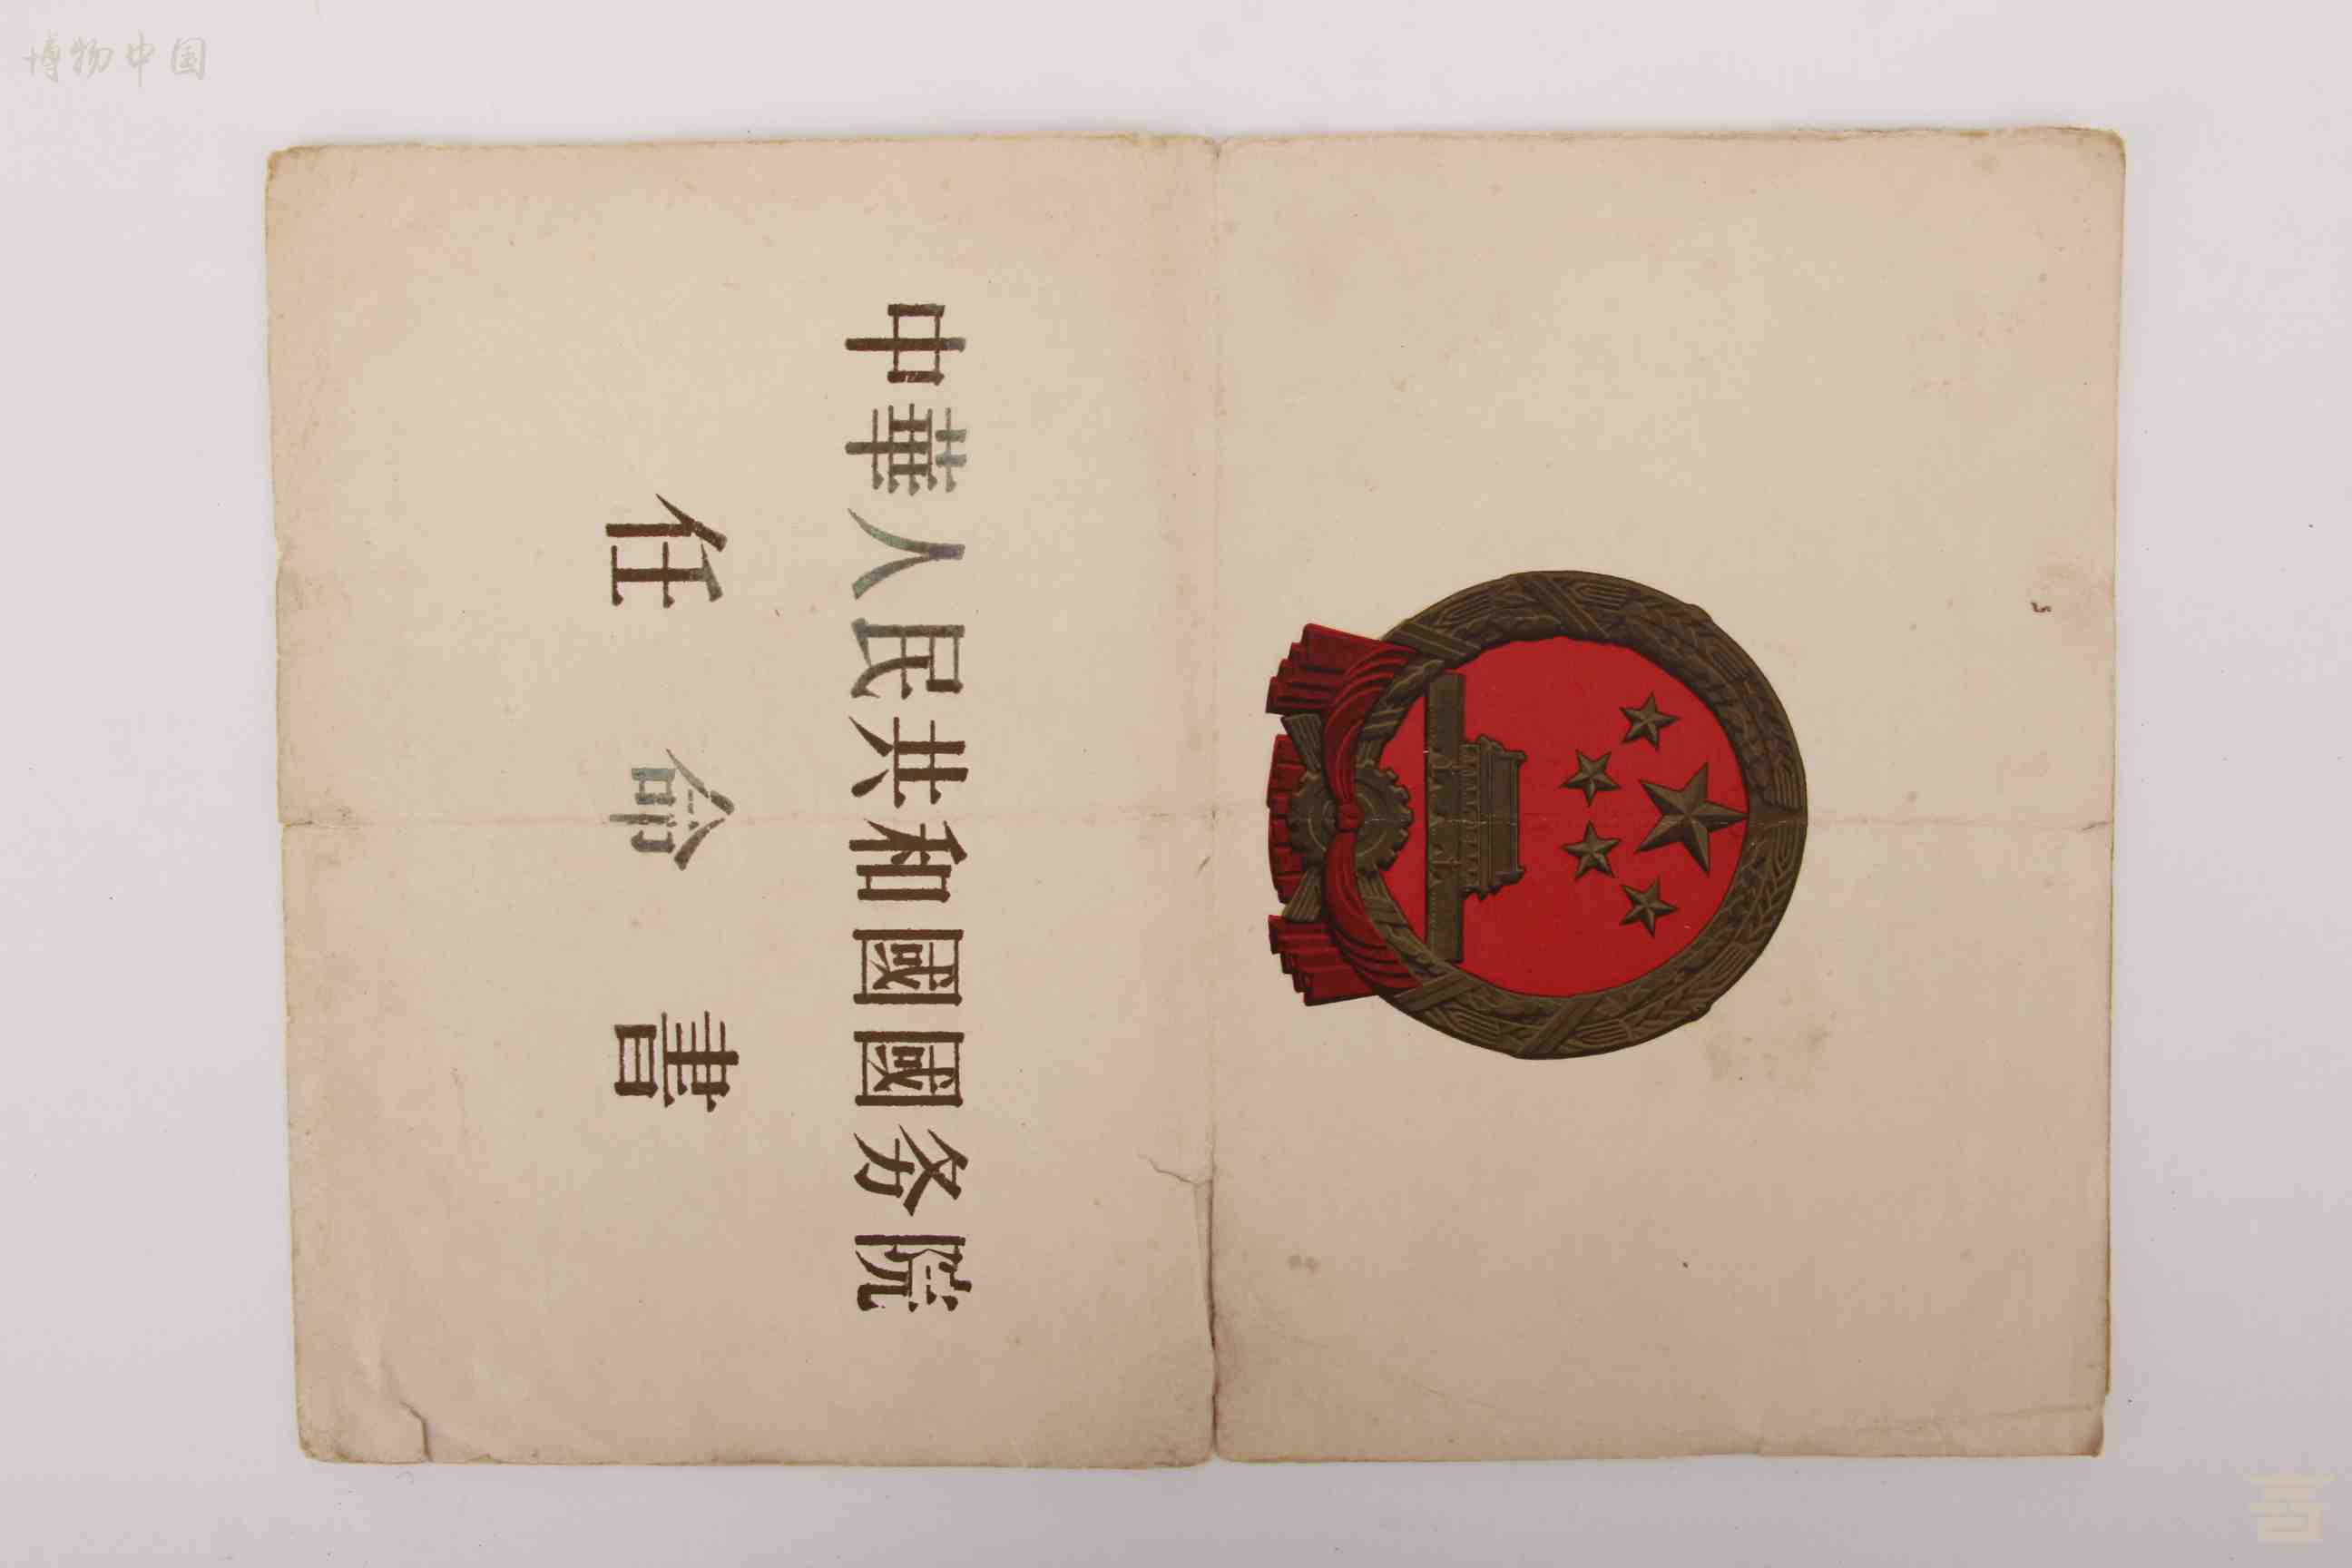 博物中国
中華人民共和國國务院
任命書